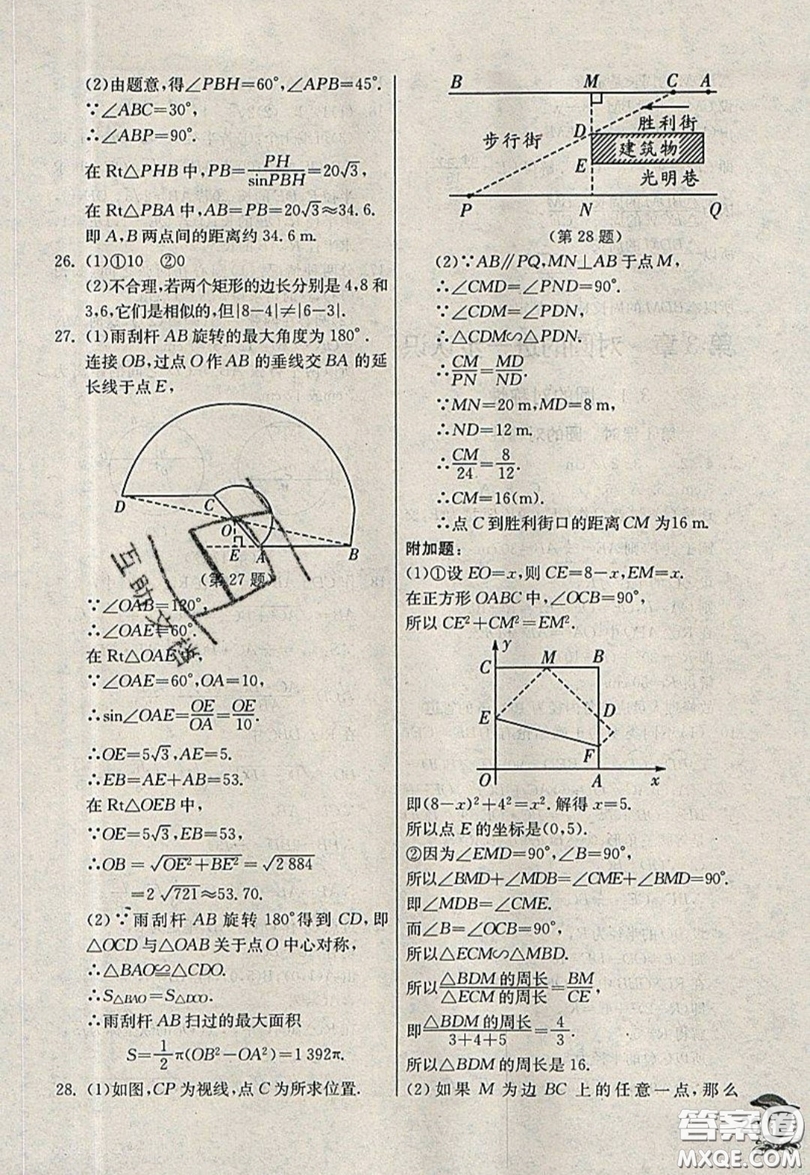 (2)由题意,得∠PBH=60°,∠APB=45°.
∵∠ABC=30°,
∴∠ABP=90°.
在 Rt△PHB 中,PB=PH/sinPBH=20√3,
在 Rt△PBA 中,AB=PB=20√3≈34.6.
即 A,B 两点间的距离约 34.6 m.
26. (1)①10 ②0
(2)不合理,若两个矩形的边长分别是 4,8 和
3,6,它们是相似的,但|8−4|≠|6−3|.
27. (1)雨刮杆 AB 旋转的最大角度为 180°.
连接 OB,过点 O 作 AB 的垂线交 BA 的延
长线于点 E,
D
C
O
E
A
B
(第 27 题)
∵∠OAB=120°,
∴∠OAE=60°.
在 Rt△OAE 中,
∵∠OAE=60°,OA=10,
∴sin∠OAE=OE/OA=OE/10.
∴OE=5√3,AE=5.
∴EB=AE+AB=53.
在 Rt△OEB 中,
∵OE=5√3,EB=53,
∴OB=√(OE²+BE²)=√2 884
=2√721≈53.70.
(2)∵雨刮杆 AB 旋转 180°得到 CD,即
△OCD 与△OAB 关于点 O 中心对称,
∴△BAO≌△CDO.
∴S△BAO=S△DCO.
∴雨刮杆 AB 扫过的最大面积
S=1/2π(OB²−OA²)=1 392π.
28. (1)如图,CP 为视线,点 C 为所求位置.
B
M
C
A
胜利街
步行街
D
建筑物
E
光明巷
P
N
Q
(第 28 题)
(2)∵AB∥PQ,MN⊥AB 于点 M,
∴∠CMD=∠PND=90°.
∵∠CDM=∠PDN,
∴△CDM∽△PDN.
∴CM/PN=MD/ND.
∵MN=20 m,MD=8 m,
∴ND=12 m.
∴CM/24=8/12.
∴CM=16(m).
∴点 C 到胜利街口的距离 CM 为 16 m.
附加题:
(1)①设 EO=x,则 CE=8−x,EM=x.
在正方形 OABC 中,∠OCB=90°,
所以 CE²+CM²=EM².
y
C
M
B
E
D
F
O
A
x
即(8−x)²+4²=x². 解得 x=5.
所以点 E 的坐标是(0,5).
②因为∠EMD=90°,∠B=90°,
所以∠BMD+∠MDB=∠CME+∠BMD=90°.
即∠MDB=∠CME.
而∠B=∠OCB=90°,
所以△ECM∽△MBD.
所以△BDM 的周长/△ECM 的周长=BM/CE.
即△BDM 的周长/3+4+5=4/3.
所以△BDM 的周长是 16.
(2)如果 M 为边 BC 上的任意一点,那么
互助文档
答案圈
MXQE.COM